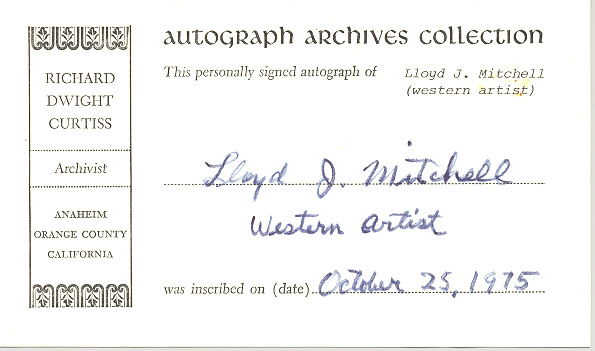 AUTOGRAPH ARCHIVES COLLECTION
This personally signed autograph of Lloyd J. Mitchell
(western artist)
RICHARD
DWIGHT
CURTISS
Archivist
ANAHEIM
ORANGE COUNTY
CALIFORNIA
Lloyd J. Mitchell
Western Artist
was inscribed on (date) October 25, 1975